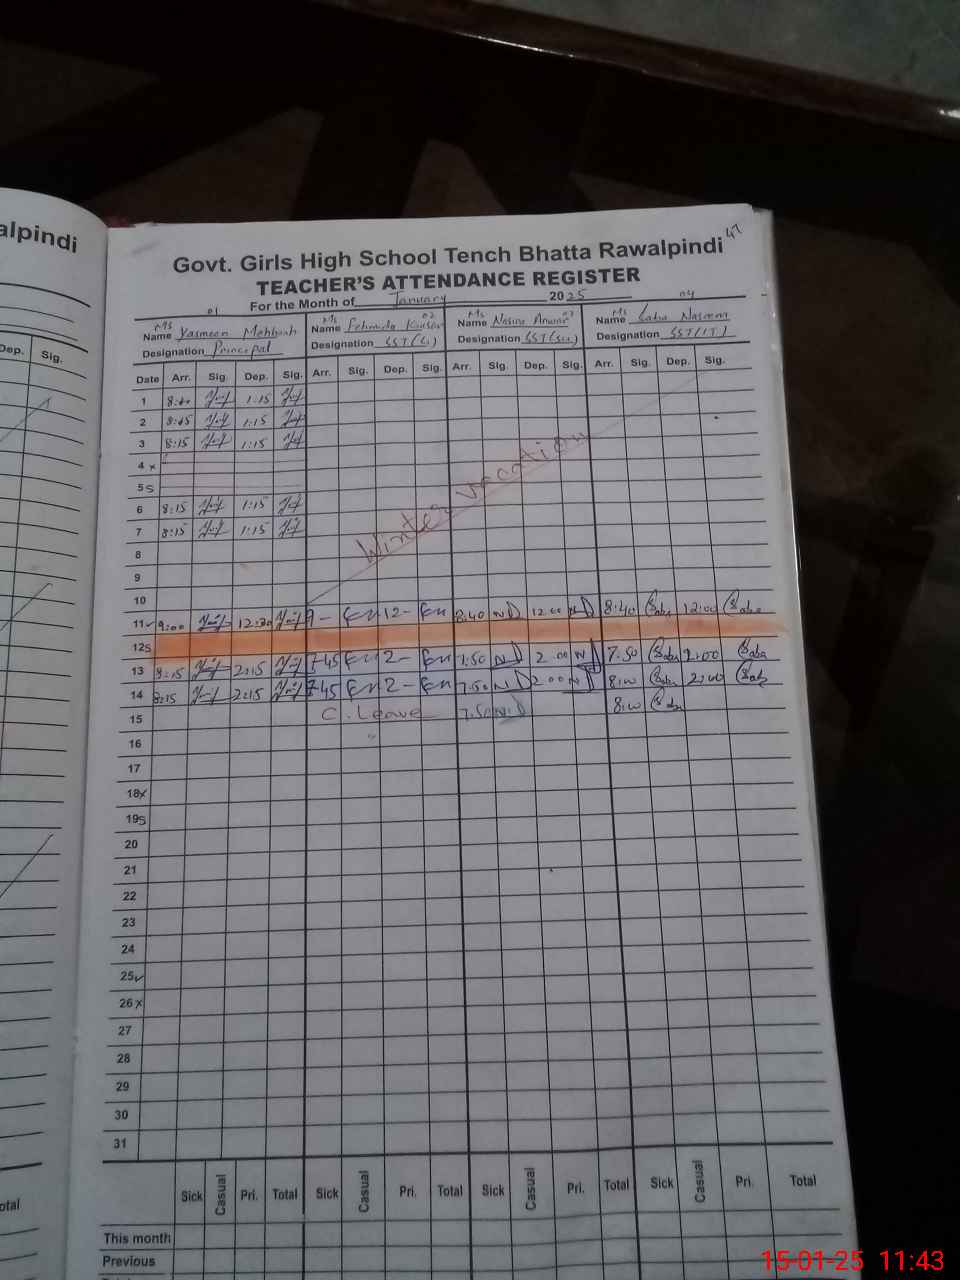 alpindi
Dep. Sig.
otal
47
Govt. Girls High School Tench Bhatta Rawalpindi
TEACHER'S ATTENDANCE REGISTER
For the Month of January 2025
01 02 03 04
Ms Name Yasmeen Mehboob Ms Name Fehmida Kausar Ms Name Nasira Anwar Ms Name Saba Naseem
Designation Principal Designation SST(Sci) Designation SST(Sci) Designation SST(IT)
Date Arr. Sig. Dep. Sig. Arr. Sig. Dep. Sig. Arr. Sig. Dep. Sig. Arr. Sig. Dep. Sig.
1 1:15
2 8:15 1:15
3 8:15 1:15
4 x
5 S
6 8:15 1:15
7 8:15 1:15
Winter vacation
8
9
10
11 ✓ 9:00 12:30 9- 12- 8:40 12:00 8:40 Saba 12:00 Saba
12 S
13 8:15 2:15 7:45 2- 7:50 2:00 7:50 Saba 2:00 Saba
14 8:15 2:15 7:45 2- 7:50 2:00 8:00 Saba 2:00 Saba
15 C. Leave 7:50 8:00 Saba
16
17
18 x
19 S
20
21
22
23
24
25 ✓
26 x
27
28
29
30
31
Sick Casual Pri. Total Sick Casual Pri. Total Sick Casual Pri. Total Sick Casual Pri. Total
This month
Previous
15-01-25 11:43